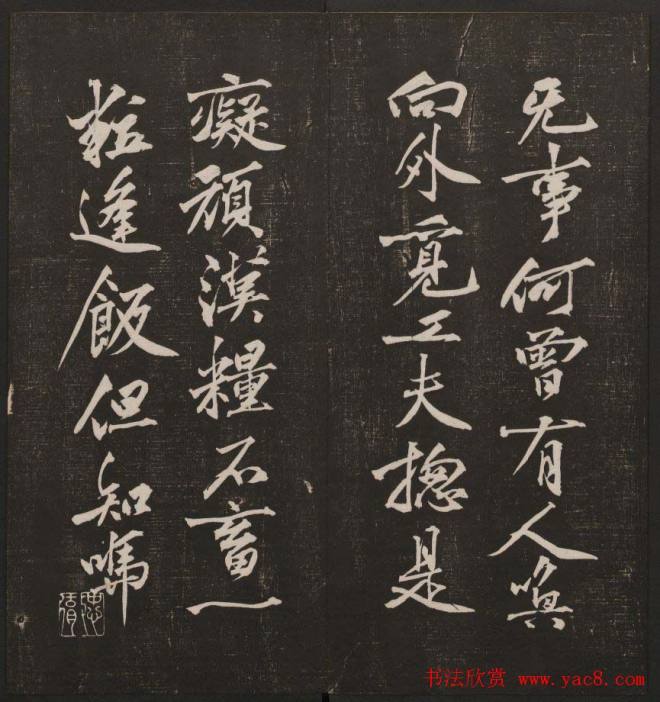 无事何曾有人唤
向外觅工夫揔是
癡頑漢糧不畜一
粒逢飯但知㗻
书法欣赏 www.yac8.com